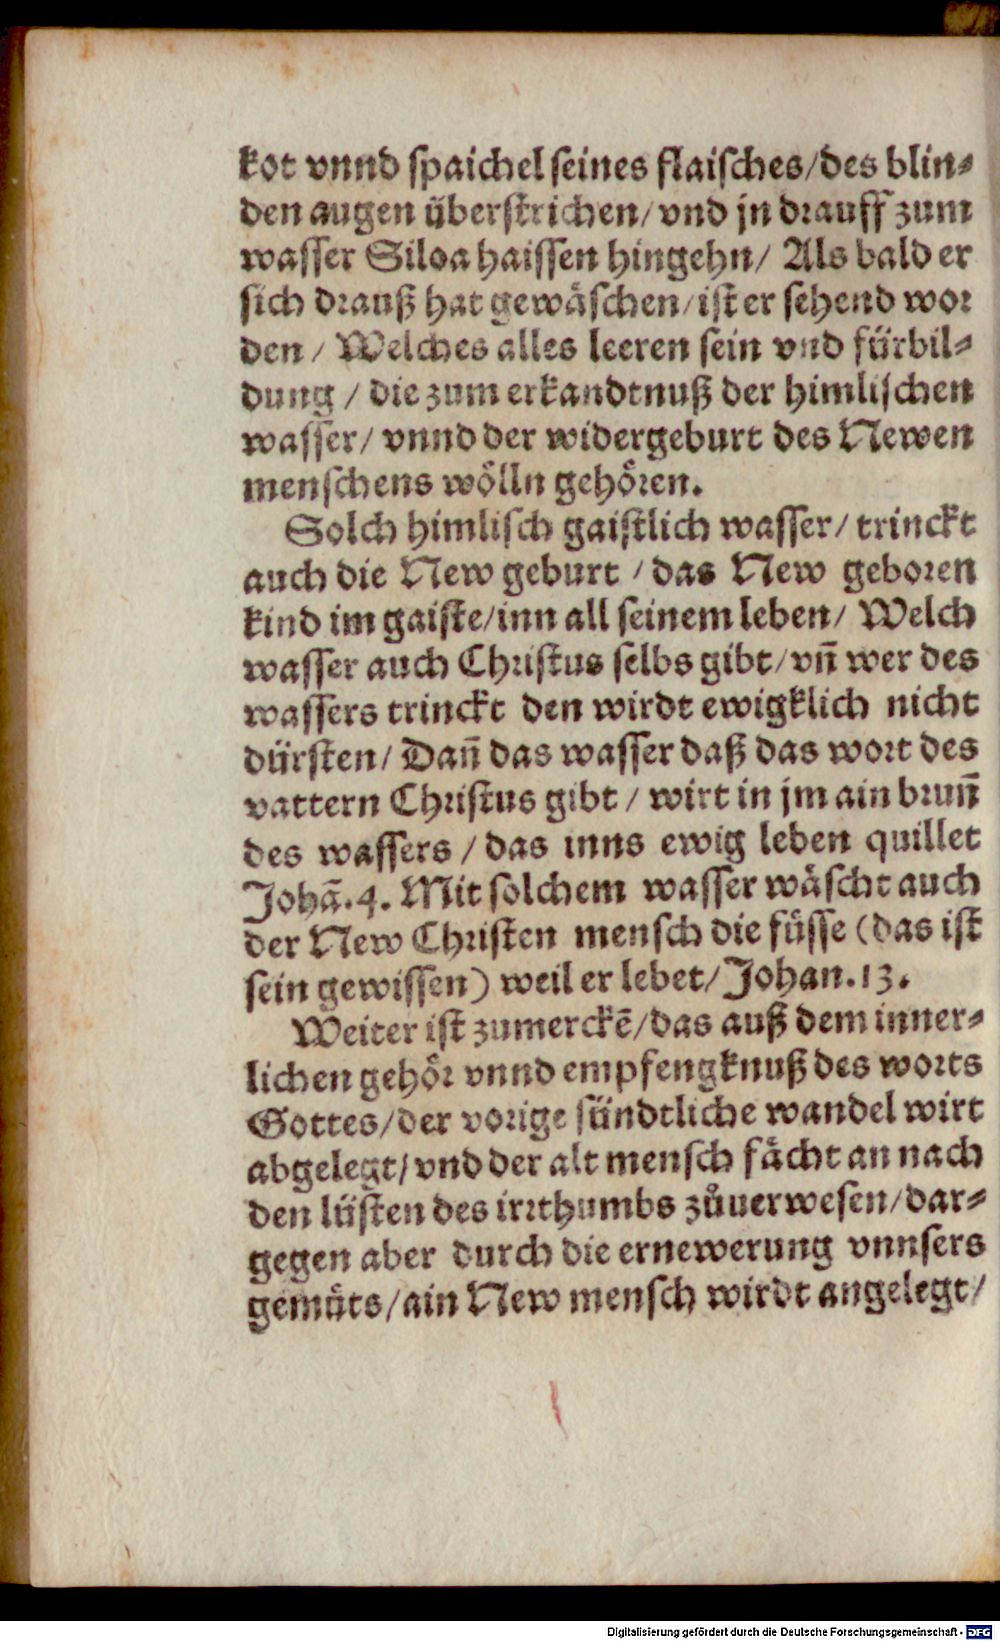 kot vnnd ſpaichel ſeines flaiſches/des blin⸗
den augen überſtrichen/vnd jn drauff zum
waſſer Siloa haiſſen hingehn/ Als bald er
ſich drauß hat gewäſchen/iſt er ſehend wor
den/ Welches alles leeren ſein vnd fürbil⸗
dung/ die zum erkandtnuß der himliſchen
waſſer/ vnnd der widergeburt des Newen
menſchens wölln gehören.
Solch himliſch gaiſtlich waſſer/ trinckt
auch die New geburt/das New geboren
kind im gaiſte/inn all ſeinem leben/ Welch
waſſer auch Chriſtus ſelbs gibt/vn̄ wer des
waſſers trinckt den wirdt ewigklich nicht
dürſten/ Dan̄ das waſſer daß das wort des
vattern Chriſtus gibt/ wirt in jm ain brun̄
des waſſers/das inns ewig leben quillet
Johā.4. Mit ſolchem waſſer wäſcht auch
der New Chriſten menſch die füſſe (das iſt
ſein gewiſſen) weil er lebet/Johan.13.
Weiter iſt zumerckē/das auß dem inner⸗
lichen gehör vnnd empfengknuß des worts
Gottes/der vorige ſündtliche wandel wirt
abgelegt/vnd der alt menſch fächt an nach
den lüſten des irrthumbs zůuerweſen/dar⸗
gegen aber durch die ernewerung vnnſers
gemüts/ain New menſch wirdt angelegt/
Digitalisierung gefördert durch die Deutsche Forschungsgemeinschaft - DFG